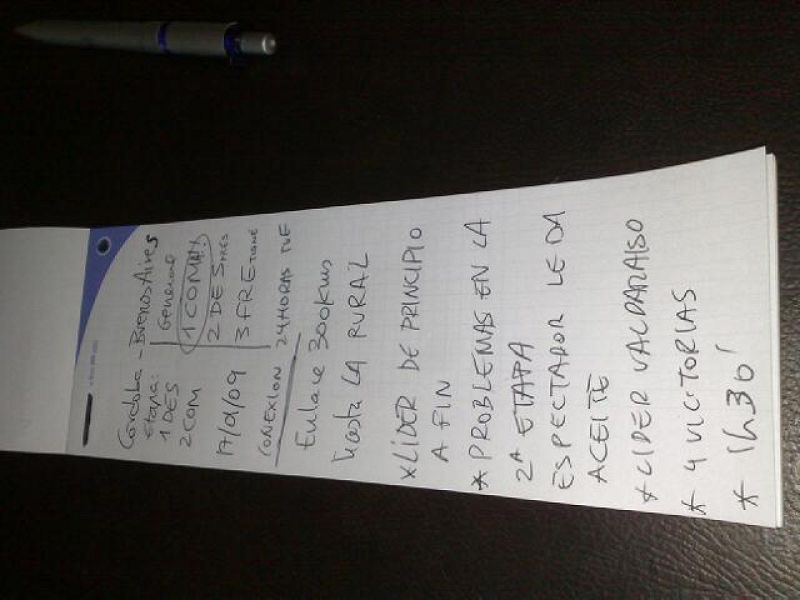 Córdoba - Buenos Aires
Etapa: General
1 DES 1 COMA!!
2 COM 2 DESPRES
3 FRETIGNE
17/01/09
CONEXION 24 HORAS TVE
Enlace 300kms
hasta LA RURAL
* LIDER DE PRINCIPIO
A FIN
* PROBLEMAS EN LA
2ª ETAPA
ESPECTADOR LE DA
ACEITE
* LIDER VALPARAISO
* 4 VICTORIAS
* 1h30'